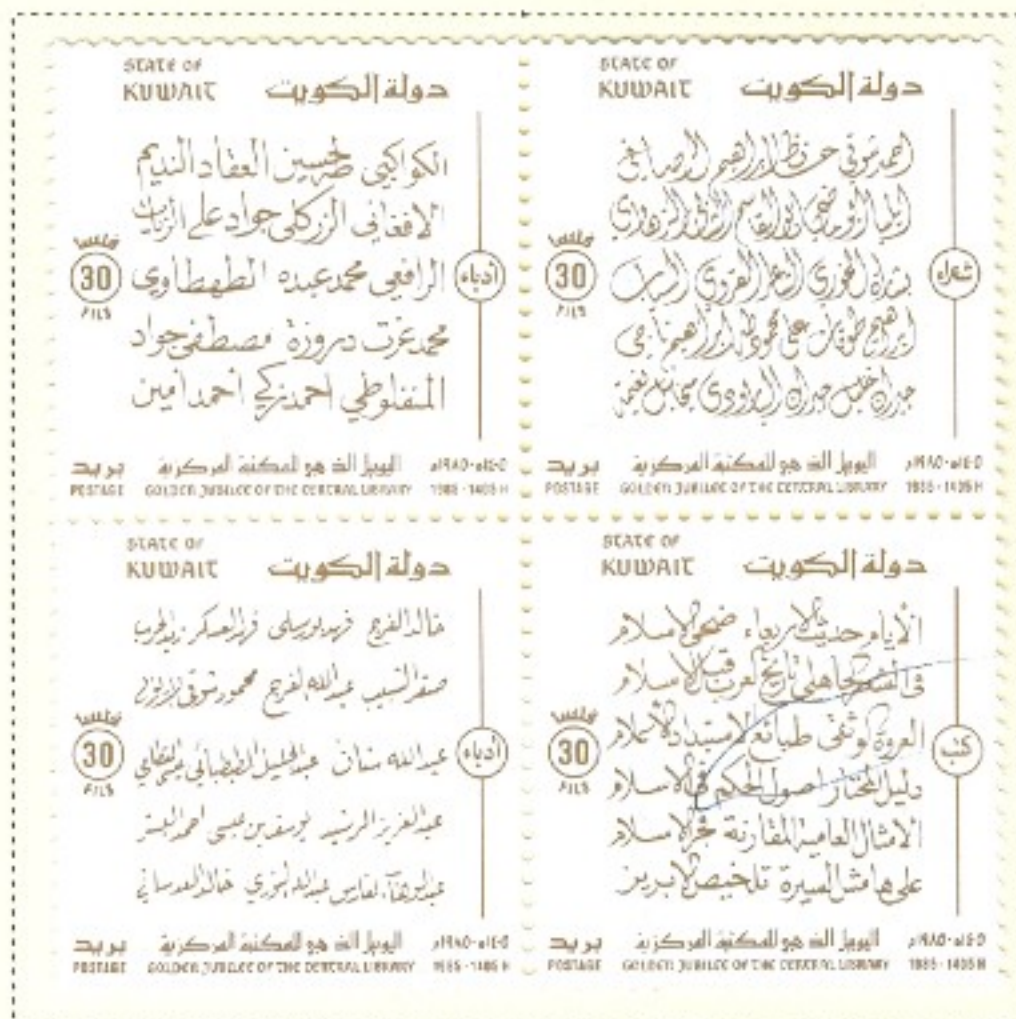 STATE OF
KUWAIT دولة الكويت
الكواكبي طه حسين العقاد النديم
الافغاني الزركلي جواد علي الزيات
الرافعي محمد عبده الطهطاوي
محمد عزت دروزة مصطفى جواد
المنفلوطي احمد زكي أحمد امين
أدباء
فلسا
30
FILS
بريد اليوبيل الذهبي للمكتبة المركزية ١٤٠٥ﻫ-١٩٨٥م
POSTAGE GOLDEN JUBILEE OF THE CENTRAL LIBRARY 1985 - 1405 H
STATE OF
KUWAIT دولة الكويت
احمد شوقي حافظ ابراهيم الرصافي
ايليا ابو ماضي ابو القاسم الزهاوي
بشارة الخوري الشاعر القروي السياب
ابراهيم طوقان علي محمود طه ابراهيم ناجي
جبران خليل جبران البارودي ميخائيل نعيمة
شعراء
فلسا
30
FILS
بريد اليوبيل الذهبي للمكتبة المركزية ١٤٠٥ﻫ-١٩٨٥م
POSTAGE GOLDEN JUBILEE OF THE CENTRAL LIBRARY 1985 - 1405 H
STATE OF
KUWAIT دولة الكويت
خالد الفرج فهد بورسلي فهد العسكر زيد الحرب
صقر الشبيب عبدالله الفرج محمود شوقي الايوبي
عبدالله سنان عبدالجليل الطبطبائي
عبدالعزيز الرشيد يوسف بن عيسى احمد البشر
الفارس عبدالله النوري خالد العدساني
أدباء
فلسا
30
FILS
بريد اليوبيل الذهبي للمكتبة المركزية ١٤٠٥ﻫ-١٩٨٥م
POSTAGE GOLDEN JUBILEE OF THE CENTRAL LIBRARY 1985 - 1405 H
STATE OF
KUWAIT دولة الكويت
الأيام حديث الاربعاء ضحى الاسلام
في الشعر الجاهلي تاريخ العرب قبل الاسلام
العروة الوثقى طبائع الاستبداد الاسلام
دليل المحتار اصول الحكم في الاسلام
الامثال العامية المقارنة فجر الاسلام
على هامش السيرة تلخيص الابريز
كتب
فلسا
30
FILS
بريد اليوبيل الذهبي للمكتبة المركزية ١٤٠٥ﻫ-١٩٨٥م
POSTAGE GOLDEN JUBILEE OF THE CENTRAL LIBRARY 1985 - 1405 H